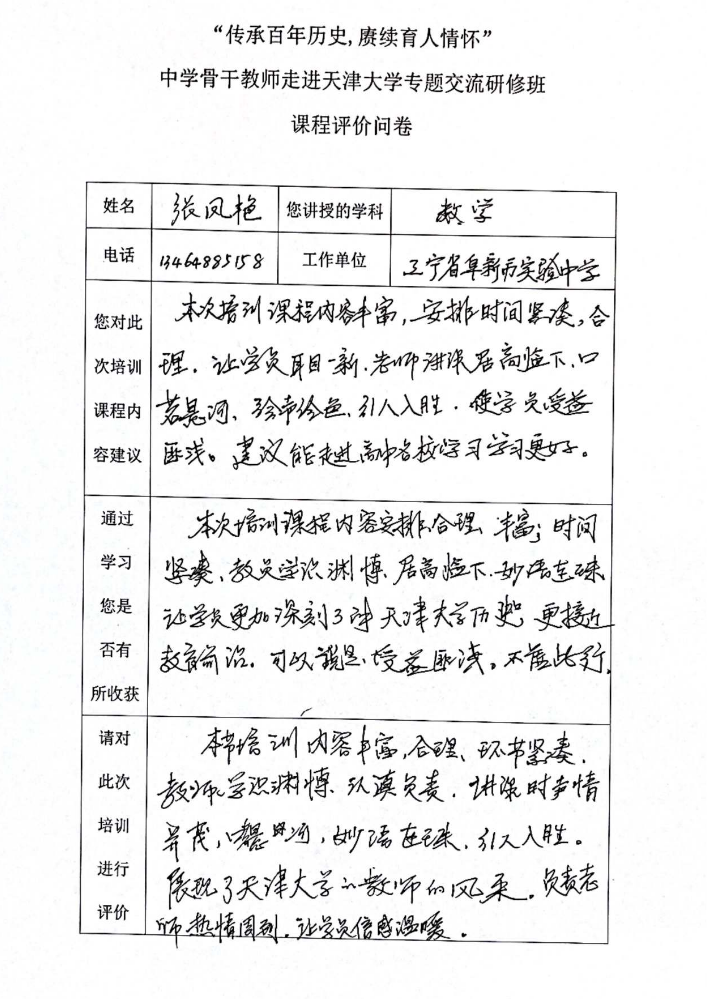 “传承百年历史,赓续育人情怀”
中学骨干教师走进天津大学专题交流研修班
课程评价问卷
姓名 张凤艳 您讲授的学科 数学
电话 13464885158 工作单位 辽宁省阜新市实验中学
您对此
次培训
课程内
容建议
本次培训课程内容丰富,安排时间紧凑,合
理,让学员耳目一新.老师讲课居高临下,口
若悬河、引人入胜.使学员受益
匪浅。建议能走进高中名校学习学习更好。
通过
学习
您是
否有
所收获
本次培训课程内容安排合理、丰富;时间
紧凑、教员学识渊博、居高临下、妙语连珠
让学员更加深刻了讲天津大学历史,更接近
教育前沿.可以说是、受益匪浅。不虚此行,
请对
此次
培训
进行
评价
本节培训内容丰富,合理、环节紧凑.
教师学识渊博、认真负责.讲课时声情
并茂,口若悬河,妙语连珠.引人入胜。
展现了天津大学的教师的风采.负责老
师热情周到.让学员倍感温暖.